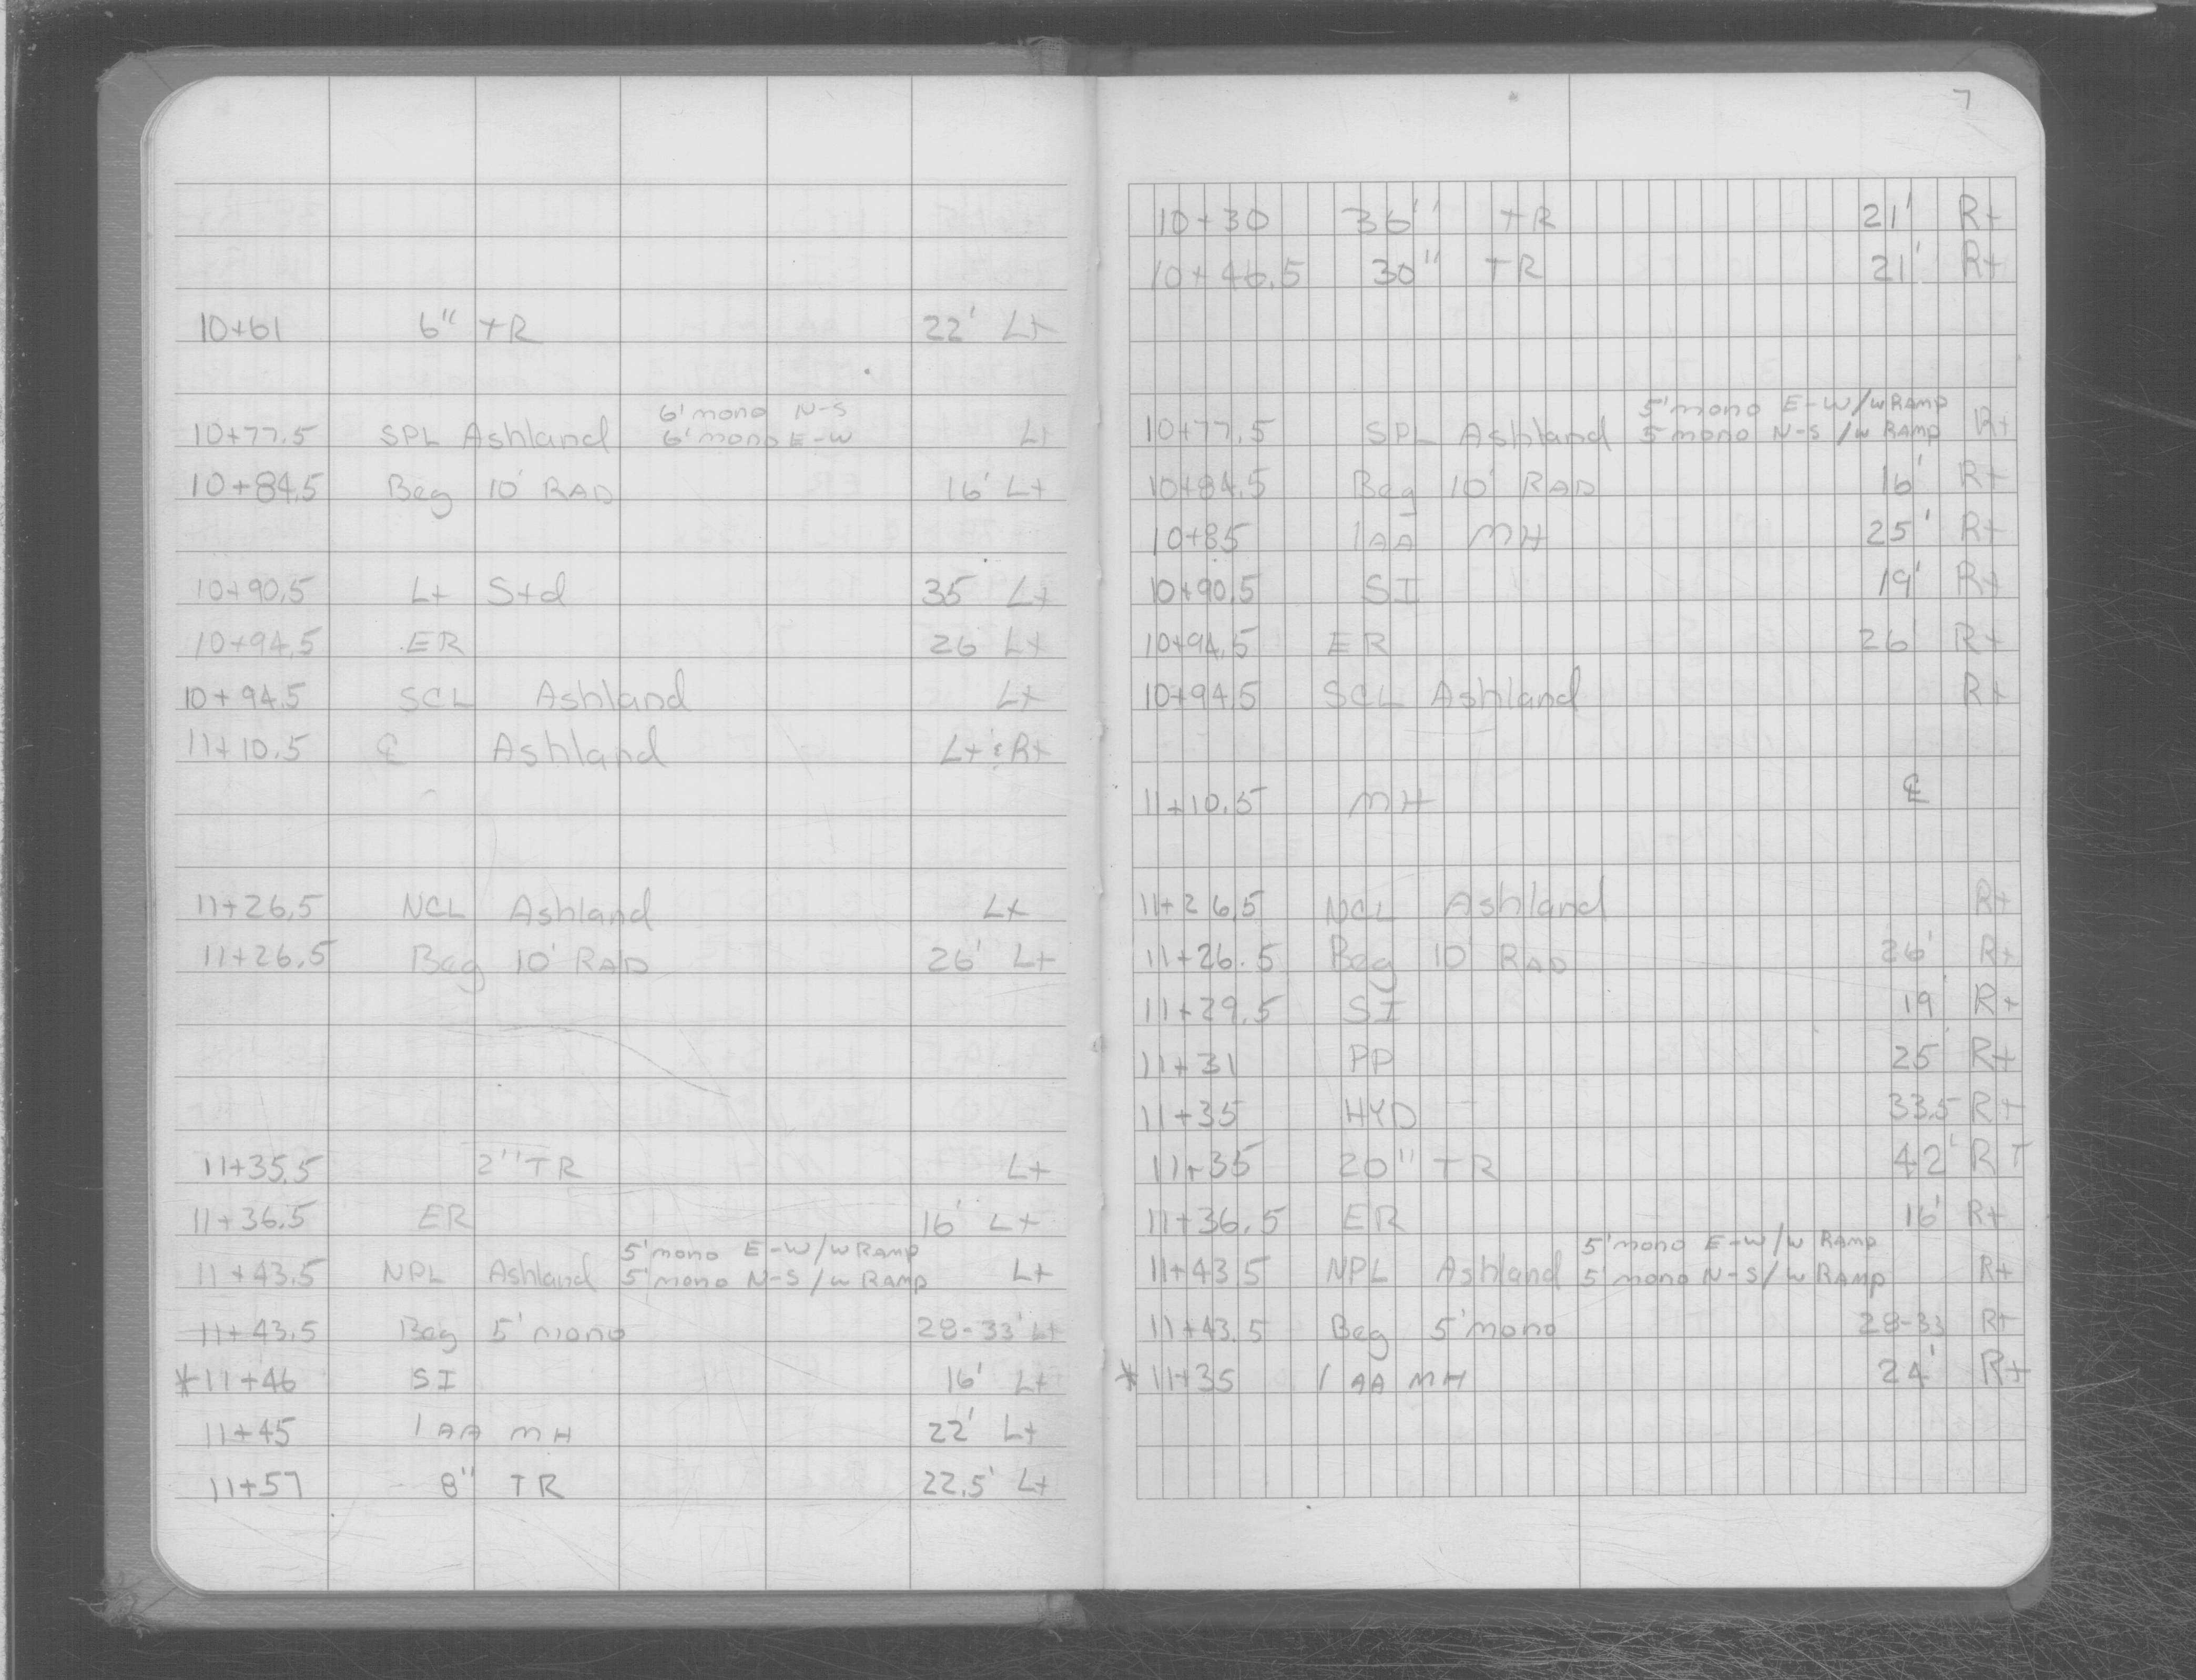 10+61 6" TR 22' Lt
6' mono N-S
10+77.5 SPL Ashland 6' mono E-W Lt
10+84.5 Beg 10' RAD 16' Lt
10+90.5 Lt Std 35 Lt
10+94.5 ER 26 Lt
10+94.5 SCL Ashland Lt
11+10.5 ℄ Ashland Lt & Rt
11+26.5 NCL Ashland Lt
11+26.5 Beg 10' RAD 26' Lt
11+35.5 2" TR Lt
11+36.5 ER 16' Lt
5' mono E-W/w Ramp
11+43.5 NPL Ashland 5' mono N-S/w Ramp Lt
11+43.5 Beg 5' mono 28-33' Lt
*11+46 SI 16' Lt
11+45 1 AA MH 22' Lt
11+57 8" TR 22.5' Lt
7
10+30 36" TR 21' Rt
10+46.5 30" TR 21' Rt
5' mono E-W/w Ramp
10+77.5 SPL Ashland 5' mono N-S/w Ramp Rt
10+84.5 Beg 10' RAD 16' Rt
10+85 1AA MH 25' Rt
10+90.5 SI 19' Rt
10+94.5 ER 26' Rt
10+94.5 SCL Ashland Rt
11+10.5 MH ℄
11+26.5 NCL Ashland Rt
11+26.5 Beg 10' RAD 26' Rt
11+29.5 SI 19 Rt
11+31 PP 25 Rt
11+35 HYD 33.5 Rt
11+35 20" TR 42' RT
11+36.5 ER 16' Rt
5' mono E-W/w Ramp
11+43.5 NPL Ashland 5' mono N-S/w Ramp Rt
11+43.5 Beg 5' mono 28-33 Rt
*11+35 1 AA MH 24' Rt